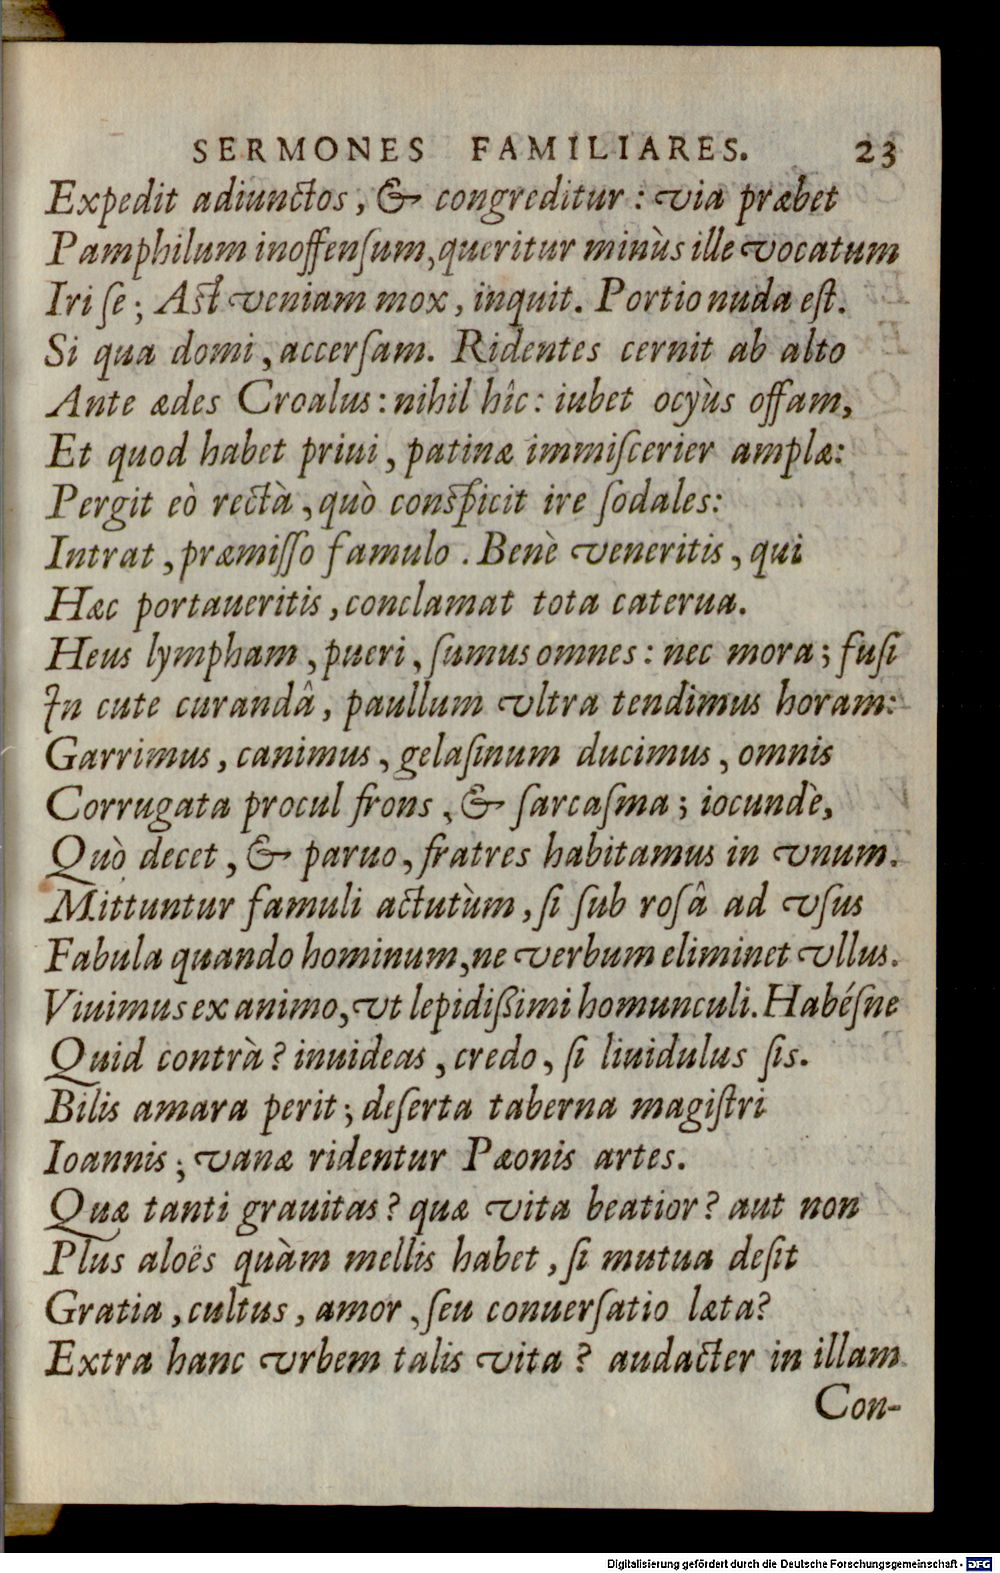 SERMONES FAMILIARES. 23
Expedit adiunctos, & congreditur: via præbet
Pamphilum inoffenſum, queritur minùs ille vocatum
Iri ſe; Aſt veniam mox, inquit. Portio nuda eſt.
Si qua domi, accerſam. Ridentes cernit ab alto
Ante ædes Croalus: nihil hîc: iubet ocyùs offam,
Et quod habet priui, patinæ immiſcerier amplæ:
Pergit eò rectà, quò conſpicit ire ſodales:
Intrat, præmiſſo famulo. Benè veneritis, qui
Hæc portaueritis, conclamat tota caterua.
Heus lympham, pueri, ſumus omnes: nec mora; fuſi
In cute curandâ, paullum vltra tendimus horam:
Garrimus, canimus, gelaſinum ducimus, omnis
Corrugata procul frons, & ſarcaſma; iocundè,
Quò decet, & paruo, fratres habitamus in vnum.
Mittuntur famuli actutùm, ſi ſub roſâ ad vſus
Fabula quando hominum, ne verbum eliminet vllus.
Viuimus ex animo, vt lepidißimi homunculi. Habéſne
Quid contrà? inuideas, credo, ſi liuidulus ſis.
Bilis amara perit; deſerta taberna magiſtri
Ioannis; vanæ ridentur Pæonis artes.
Quæ tanti grauitas? quæ vita beatior? aut non
Plus aloës quàm mellis habet, ſi mutua deſit
Gratia, cultus, amor, ſeu conuerſatio læta?
Extra hanc vrbem talis vita? audacter in illam
Con-
Digitalisierung gefördert durch die Deutsche Forschungsgemeinschaft - DFG